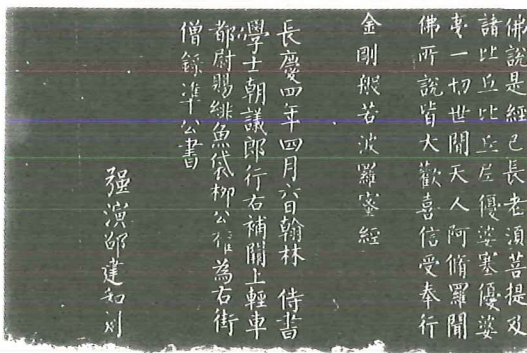 佛說是經已長老須菩提及
諸比丘比丘尼優婆塞優婆
夷一切世間天人阿脩羅聞
佛所說皆大歡喜信受奉行
金剛般若波羅蜜經
長慶四年四月六日翰林侍書
學士朝議郎行右補闕上輕車
都尉賜緋魚袋柳公權為右街
僧錄準公書
强演邵建和刻